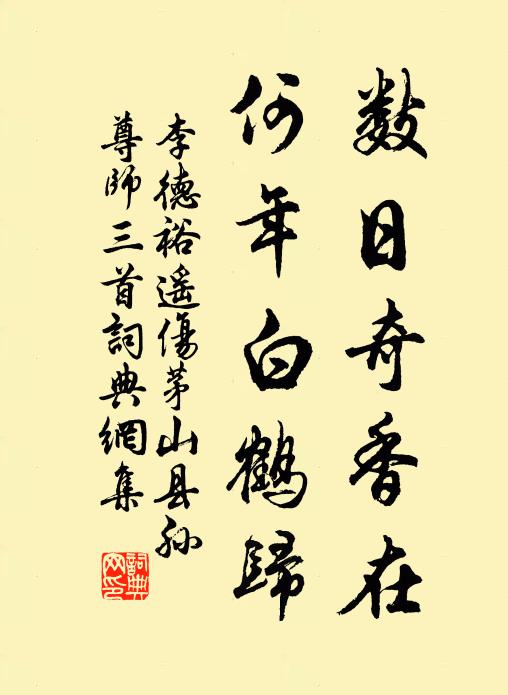 数日奇香在
何年白鶴歸
李德裕遥傷茅山县孙
尊師三首詞典網集
詞典网印